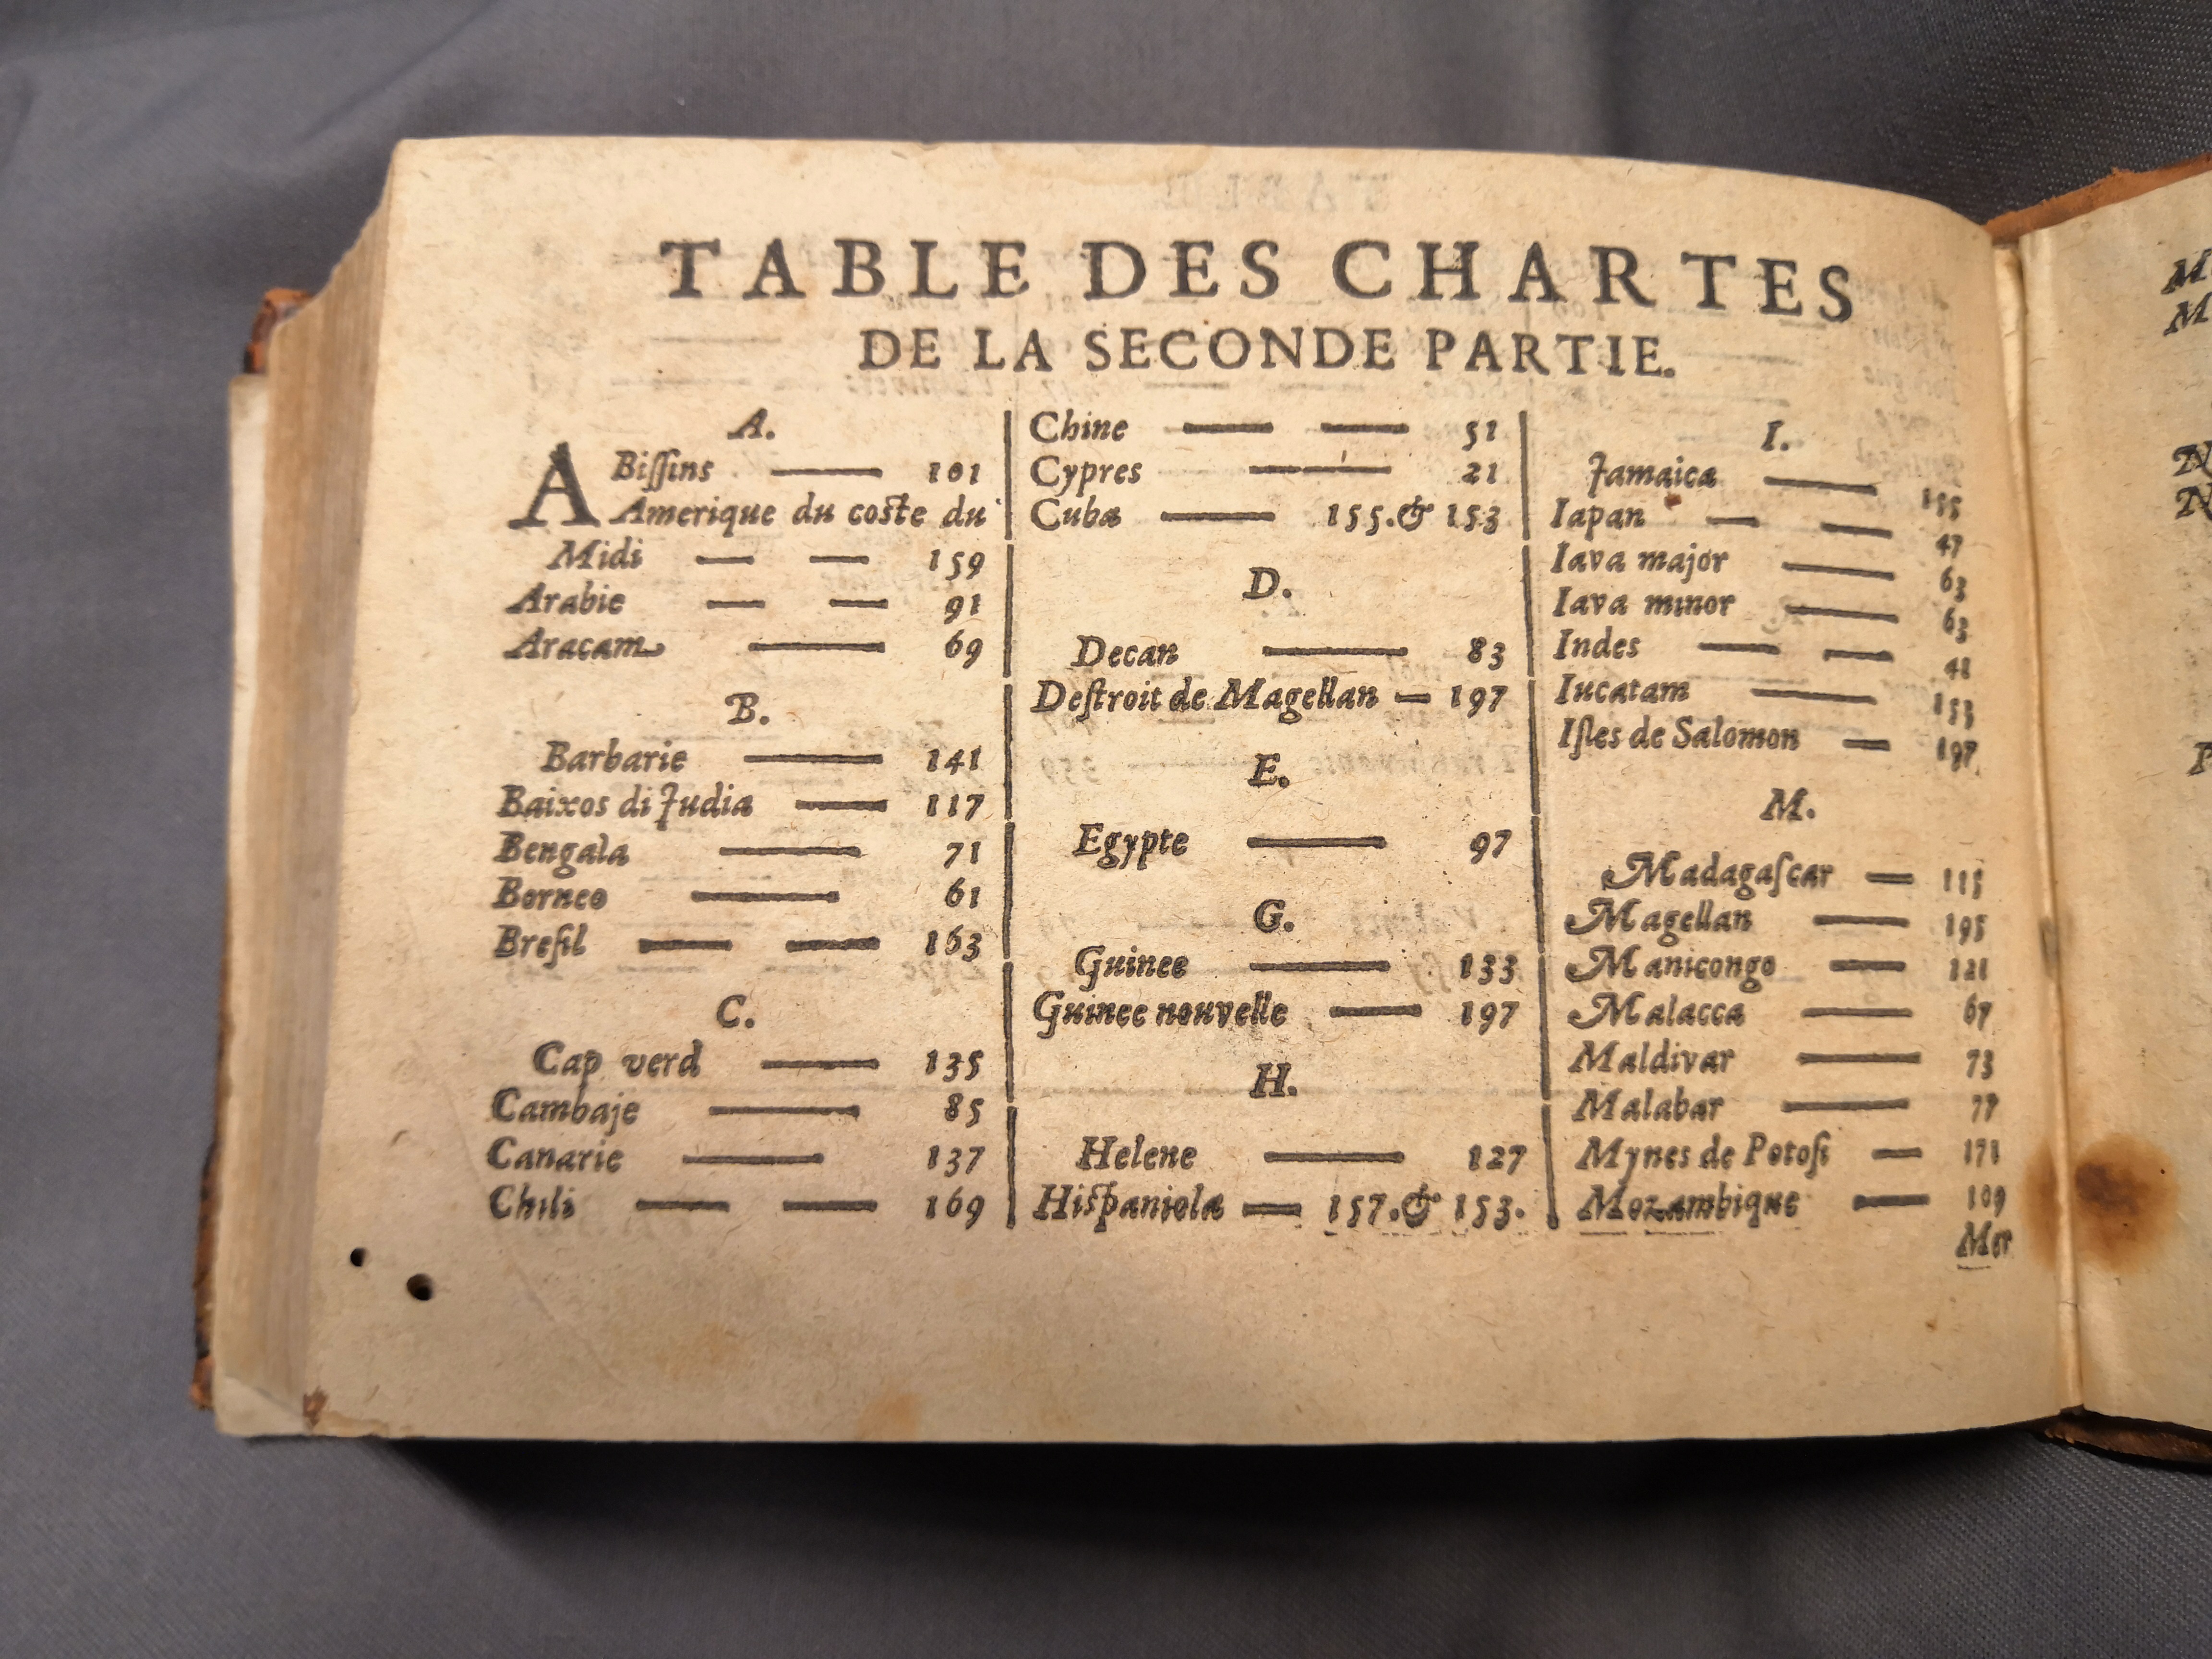 TABLE DES CHARTES
DE LA SECONDE PARTIE.
A.
ABiſſins 101
Amerique du coſte du
Midi 159
Arabie 91
Aracam 69
B.
Barbarie 141
Baixos di Judia 117
Bengala 71
Borneo 61
Breſil 163
C.
Cap verd 135
Cambaje 85
Canarie 137
Chili 169
Chine 51
Cypres 21
Cuba 155.& 153
D.
Decan 83
Deſtroit de Magellan 197
E.
Egypte 97
G.
Guinee 133
Guinee nouvelle 197
H.
Helene 127
Hiſpaniola 157.& 153.
I.
Jamaica 155
Iapan 47
Iava major 63
Iava minor 63
Indes
Iucatam 153
Iſles de Salomon 197
M.
Madagaſcar 115
Magellan 195
Manicongo 121
Malacca 67
Maldivar 73
Malabar 77
Mynes de Potoſi 171
Mozambique 109
Mor
M
M
N
N
P